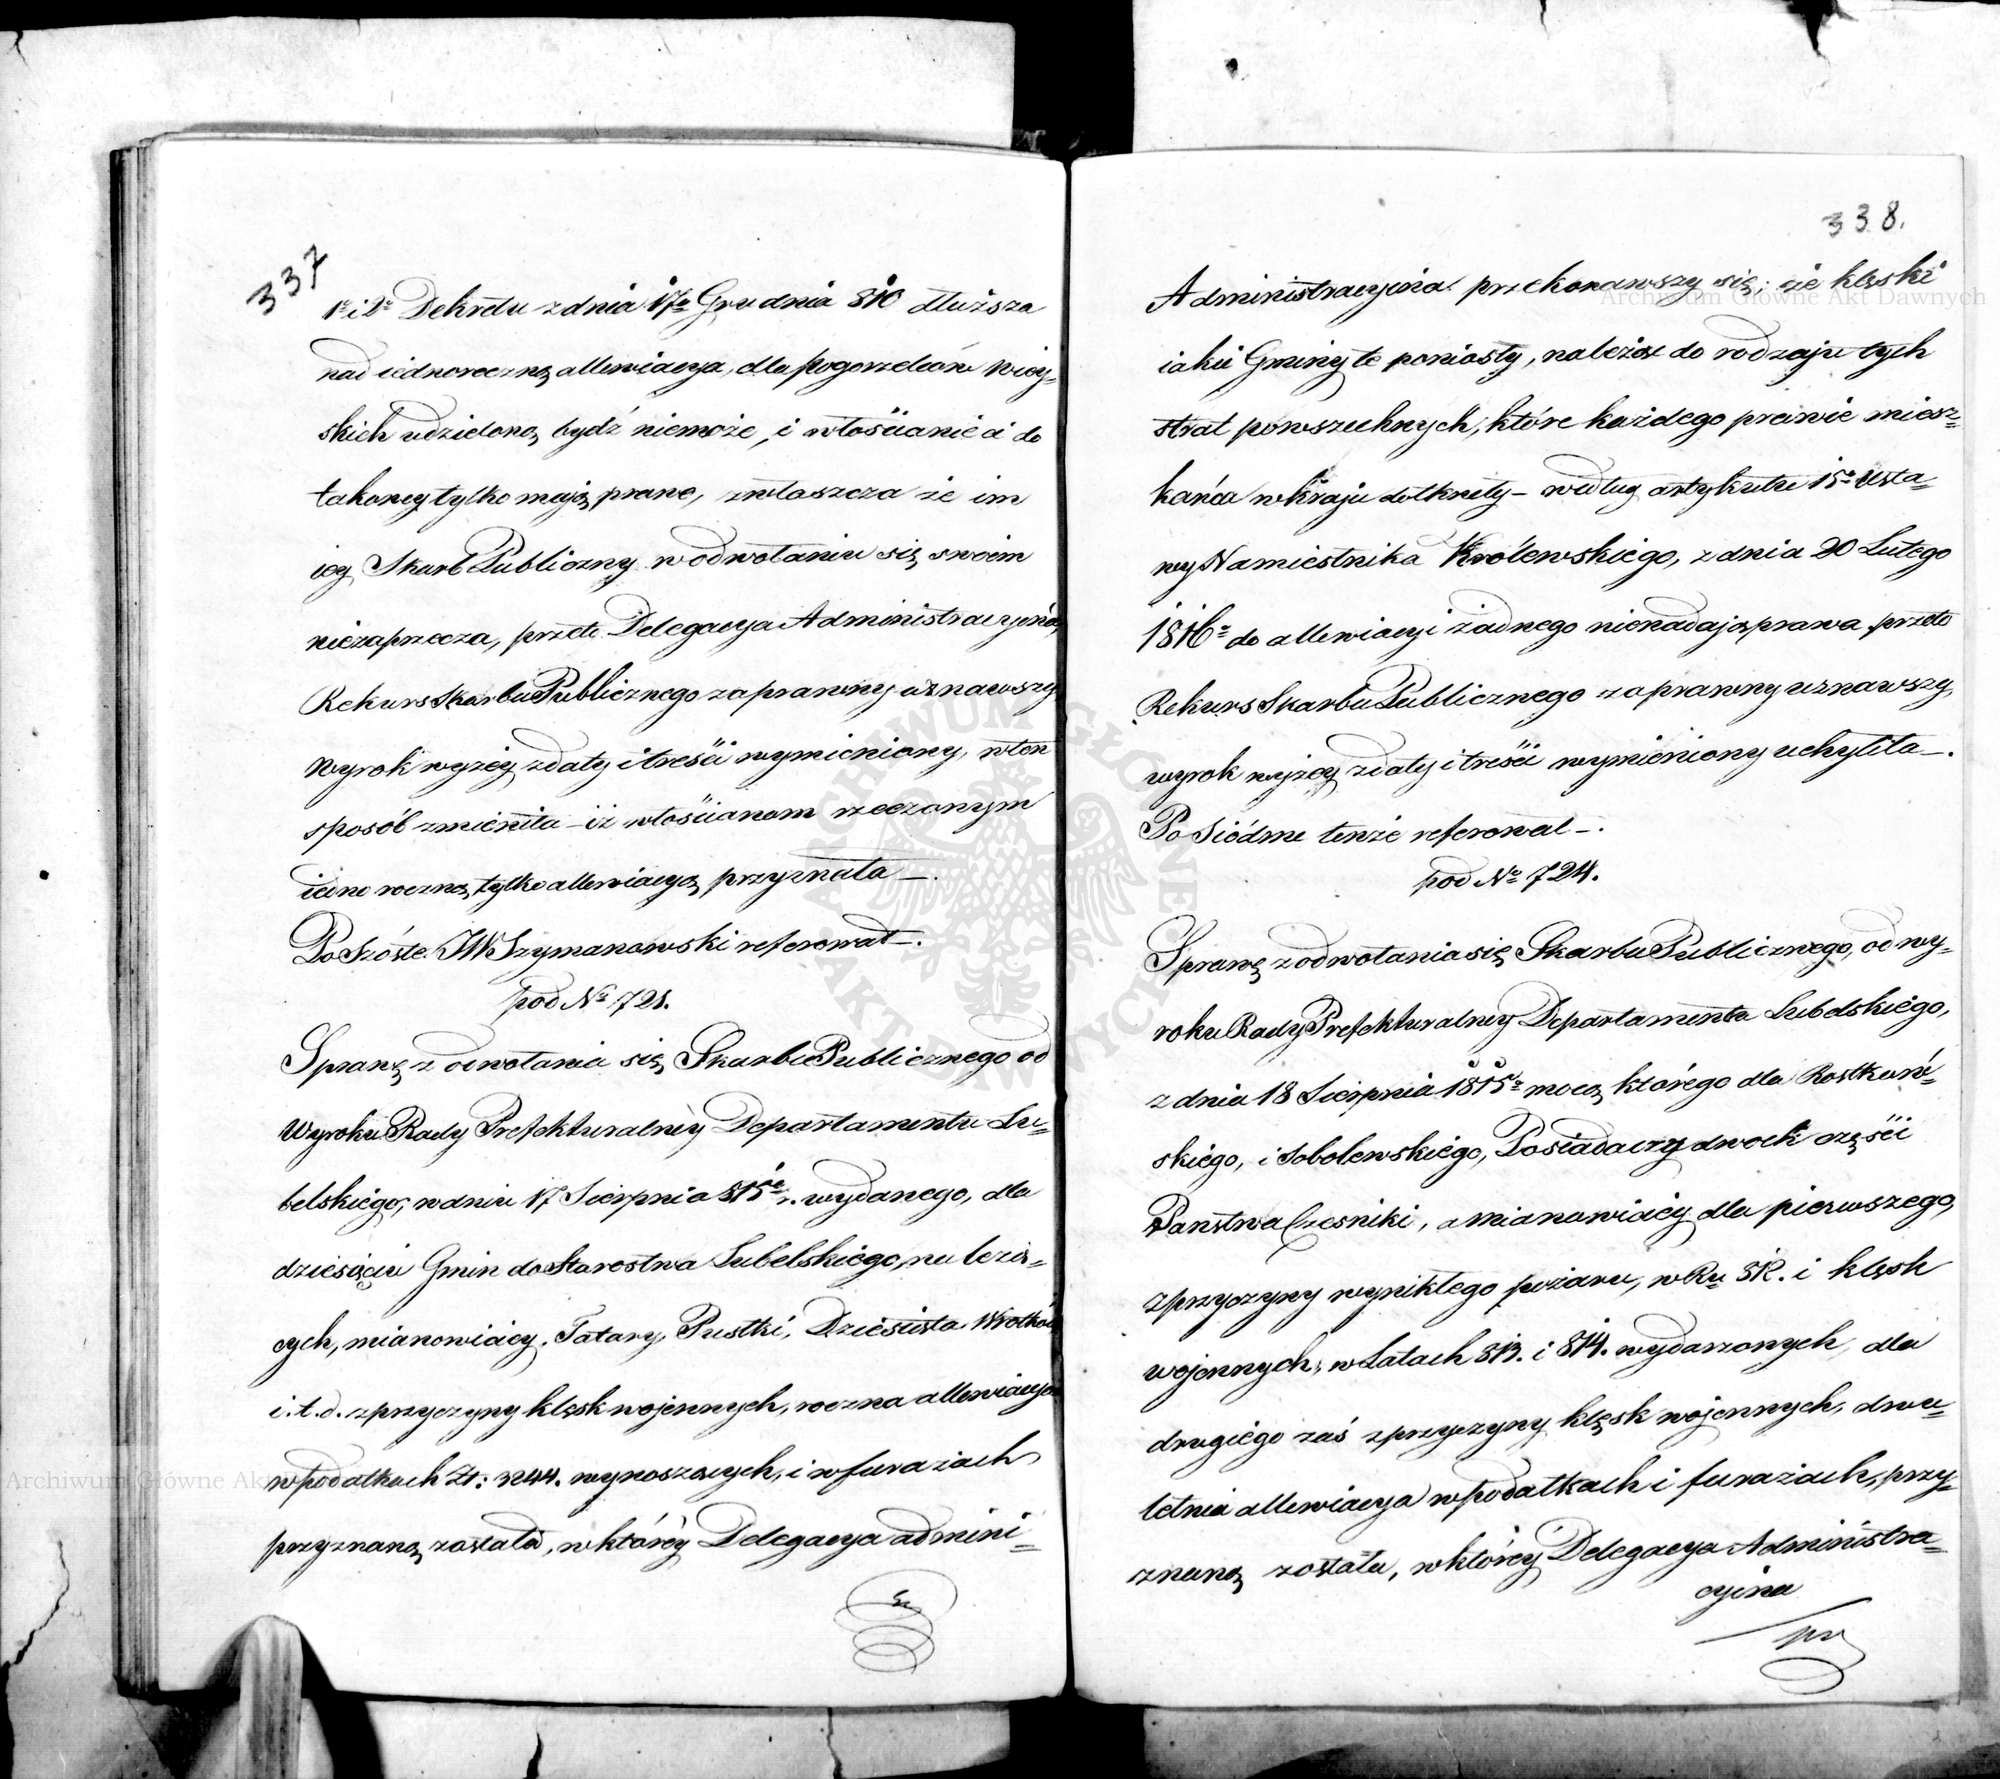 337
1º i 2º Dekretu z dnia 17º Grudnia 810 dłuższa
nad iednoroczną allewiacya, dla pogorzelców wiey-
skich udzieloną bydź niemoże, i włościanie ci do
takowey tylko mają prawo, zwłaszcza że im
iey Skarb Publiczny w odwołaniu się swoim
niezaprzecza, przeto Delegacya Administracyjna,
Rekurs Skarbu Publicznego za prawny uznawszy
Wyrok wyżey z daty i treści wymieniony, w ten
sposób zmieniła – iż włościanom rzeczonym
iedno roczną tylko allewiacyą przyznała –.
Po Szóste JW Szymanowski referował –.
pod Nº 721.
Sprawę z odwołania się Skarbu Publicznego od
Wyroku Rady Prefekturalney Departamentu Lu-
belskiego, w dniu 17 Sierpnia 815 r. wydanego, dla
dziesięciu Gmin do Starostwa Lubelskiego, należą-
cych, mianowicie, Tatary, Pustki, Dziesiąta Wrotków
i. t. d. z przyczyny klęsk wojennych, roczna allewiacya
w podatkach Zł: 3244. wynoszących, i w furażach
przyznaną została, w którey Delegacya admini-
338.
Administracyjna przekonawszy się, że klęski
iakie Gminy te poniosły, należą do rodzaju tych
strat powszechnych, które każdego prawie miesz-
kańca w kraju dotknęły – według artykułu 15º Usta-
wy Namiestnika Królewskiego, z dnia 20 Lutego
1816º do allewiacyi żadnego nienadają prawa przeto
Rekurs Skarbu Publicznego za prawny uznawszy,
wyrok wyżey z daty i treści wymieniony uchyliła –.
Po Siódme tenże referował –.
pod Nº 724.
Sprawę z odwołania się Skarbu Publicznego, od wy-
roku Rady Prefekturalney Departamentu Lubelskiego,
z dnia 18 Sierpnia 1815º mocą którego dla Rostkow-
skiego, i Sobolewskiego, Posiadaczy dwoch części
Państwa Czesniki, a mianowiciey dla pierwszego,
z przyczyny wynikłego pożaru, w Ru 812. i klęsk
wojennych, w Latach 813. i 814. wydarzonych, dla
drugiego zaś z przyczyny klęsk wojennych, dwu-
letnia allewiacya w podatkach i furażach, przy-
znaną została, w którey Delegacya Administra-
cyjna
Archiwum Główne Akt Dawnych
ARCHIWUM GŁÓWNE AKT DAWNYCH